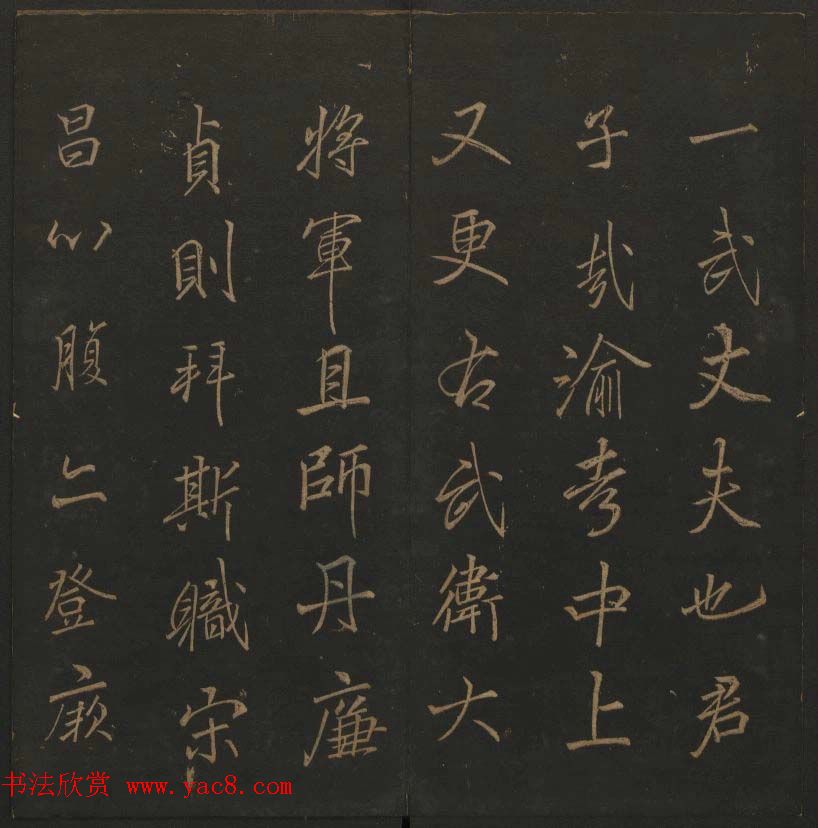 一武丈夫也君
子哉渝考中上
又更右武衛大
將軍且師丹廉
貞則拜斯職宋
昌以腹亦登厥
书法欣赏 www.yac8.com